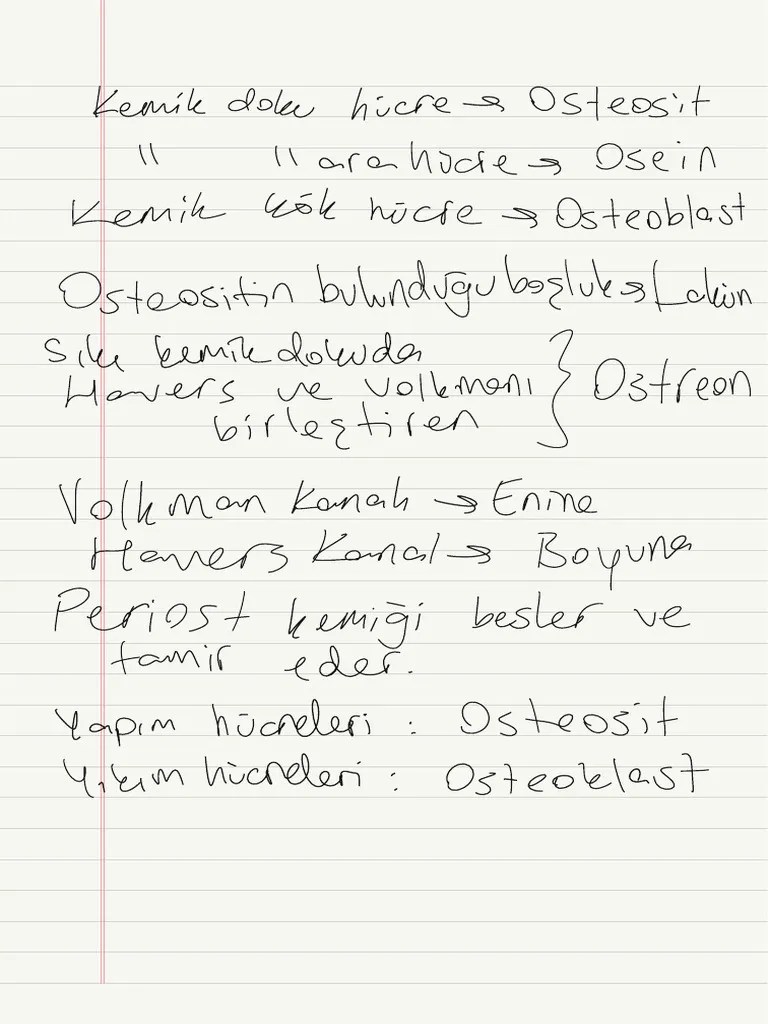 Kemik doku hücre → Osteosit
" " ara hücre → Osein
Kemik kök hücre → Osteoblast
Osteositin bulunduğu boşluk → Lakün
Sıkı kemik dokuda
Havers ve Volkmanı } Ostreon
birleştiren
Volkman Kanalı → Enine
Havers Kanal → Boyuna
Periost kemiği besler ve
tamir eder.
Yapım hücreleri : Osteosit
Yıkım hücreleri : Osteoklast